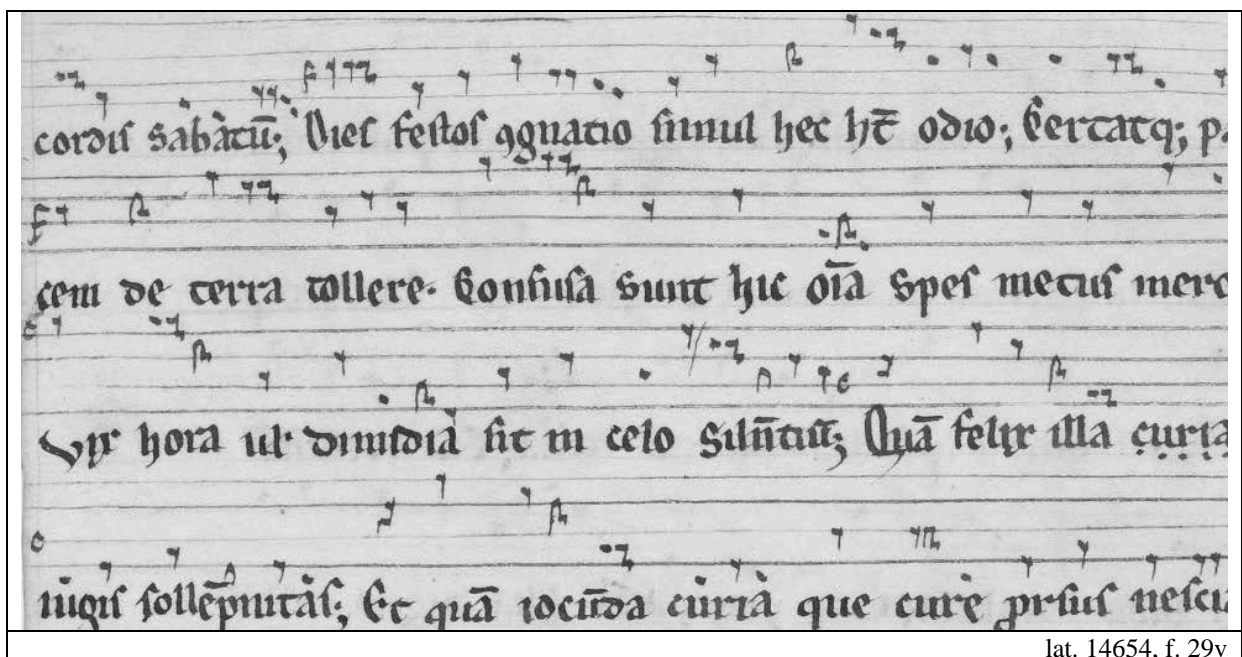 cordis sabatū; Dies festos ꝯgnatio simul hec ht̄ odio; Certatq; pa
cem de terra tollere. Confusa sunt hic oīa Spes metus mero
Vix hora ul' dimidia fit in celo siln̄tiū; Quā felix illa curia
iugis sollēpnitas; Et quā iocūda curia que cure prsus nescia
lat. 14654, f. 29v